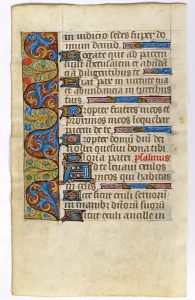 in iudicio sedes super do
mum dauid.
Rogate que ad pacem
sunt iherusalem et abūdā
cia diligentibus te
Fiat pax in uirtute tua
et abundancia in turribus
tuis
Propter fratres meos et
proximos meos loquebar
pacem de te
Propter domum dñi dei
nostri quesiui bona tibi
Gloria patri psalmus
Ad te leuaui oculos
meos qui habitas
in celis
Ecce sicut oculi seruorū
in manibus dñorū suorū
Sicut oculi ancille in